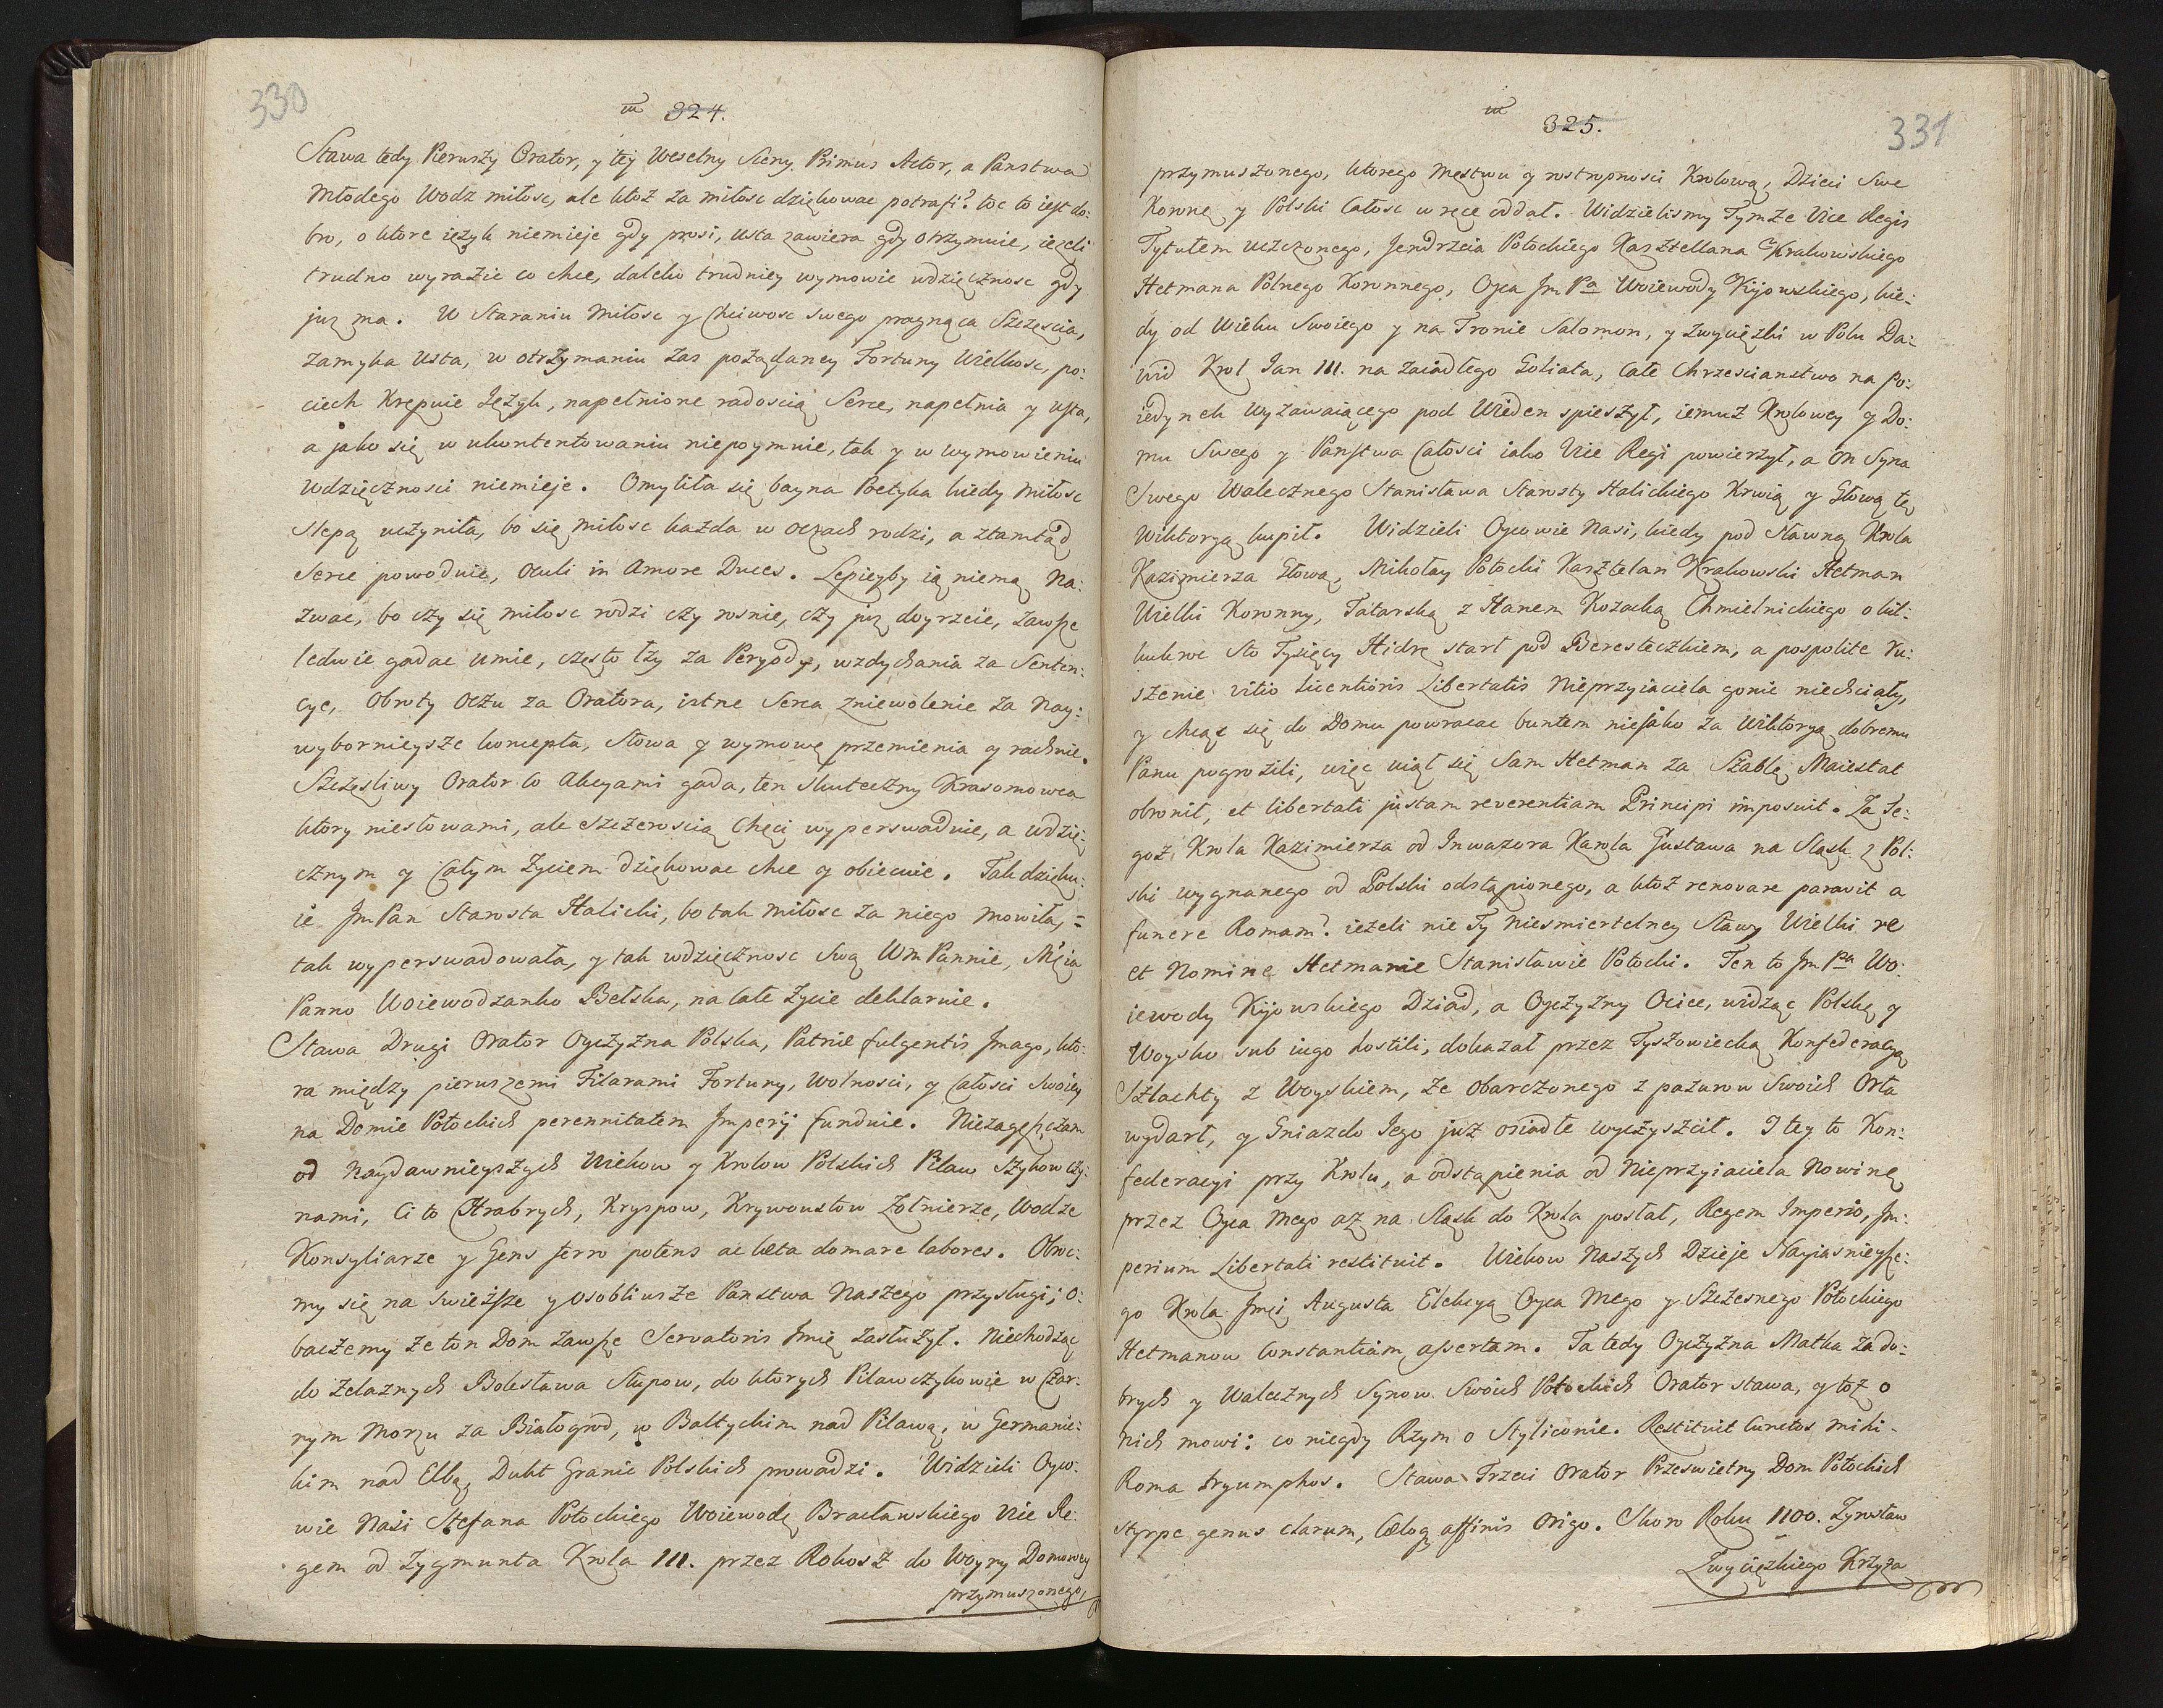 330
324.
Stawa tedy Pierwszy Orator, y tey Weselny Sceny Primus Actor, a Panstwa
Młodego Wodz miłosc, ale ktoż za miłosc dziękowac potrafi? toc to iest do:
bro, o ktore ięzyk niemieje gdy prosi, usta zawiera gdy otrzymuie, ieżeli
trudno wyrazic co chce, daleko trudniey wymowic wdzięcznosc gdy
juz ma. W Staraniu Miłosc y Chciwosc swego pragnąca Szczęscia,
zamyka usta, w otrzymaniu zas pożądaney Fortuny Wielkosc, po:
ciech Krępuie Języh, napełnione radoscią Serce, napełnia y usta,
a jako się w ukontentowaniu niepoymuie, tak y w wymowieniu
Wdzięcznosci niemieje. Omyliła się bayna Poetyka kiedy Miłosc
slepą uczyniła, bo się miłosc każda w oczach rodzi, a ztamtąd
Serce powoduie, Oculi in Amore Duces. Lepieyby ią niemą Na:
zwac, bo czy się miłosc rodzi czy rosnie, czy juz doyrzeie, zawsze
ledwie gadac umie, często łzy za Peryody, wzdychania za Senten:
cye, Obroty Oczu za Oratora, istne Serca zniewolenie za Nay:
wybornieysze koncepta, słowa y wymowę przemienia y rachuie.
Szczęsliwy Orator co Akcyami gada, ten Skuteczny Krasomowca
ktory niesłowami, ale szczeroscią Chęci wyperswaduie, a wdzię:
cznym y Całym życiem dziękowac chce y obiecuie. Tak dzięku:
ie JmPan Starosta Halicki, bo tak Miłosc za niego mowiła, =
tak wyperswadowała, y tak wdzięcznosc swą WmPannie, Mcia
Panno Woiewodzanko Bełska, na całe życie deklaruie.
Stawa Drugi Orator Oyczyzna Polska, Patriæ fulgentis Imago, kto:
ra między pierwszemi Filarami Fortuny, Wolnosci, y Całosci Swoiey
na Domie Potockich perennitatem Imperij funduie. Niezagęszczam
od Naydawnieyszych Wiekow y Krolow Polskich Pilaw Szykow czy:
nami, Ci to Chrabrych, Kryspow, Krzywoustow Zołnierze, Wodze
Konsyliarze y Gens ferro potens ac læta domare labores. Obroc:
my się na swieższe y osobliwsze Panstwa Naszego przysługi; o:
baczemy że ton Dom zawsze Servatoris Imię zasłużył. Niechodząc
do żelaznych Bolesława Słupow, do ktorych Pilawczykowie w Czar:
nym Morzu za Białogrod, w Baltyckim nad Pilawą, w Germanic:
kim nad Elbą, Dukt Granic Polskich prowadzi. Widzieli Oyco:
wie Nasi Stefana Potockiego Woiewodę Bracławskiego Vice Re:
gem od Zygmunta Krola III. przez Rokosz do Woyny Domowey
przymuszonego,
331
325.
przymuszonego, ktorego Męstwu y rostropnosci Krolową, Dzieci Swe
Koronę y Polski Całosc w ręce oddał. Widzielismy Tymże Vice Regis
Tytułem uczczonego, Jendrzeia Potockiego Kasztellana Krakowskiego
Hetmana Polnego Koronnego, Oyca Jm Pa Woiewody Kijowskiego, kie:
dy od Wieku Swoiego y na Tronie Salomon, y zwyciężki w Polu Da:
wid Krol Jan III. na zaiadłego Goliata, całe Chrzescianstwo na Po:
iedynek wyzawaiącego pod Wieden spieszył, iemuż Krolowey y Do:
mu Swego y Panstwa Całosci iako Vice Regi powierzył, a On Syna
Swego Walecznego Stanisława Starosty Halickiego Krwią y Głową tę
Wiktoryą kupił. Widzieli Oycowie Nasi, kiedy pod sławną Krola
Kazimierza Głową, Mikołay Potocki Kasztelan Krakowski Hetman
Wielki Koronny, Tatarską z Hanem Kozacką Chmielnickiego o kil:
kukroc sto Tysięcy Hidrę starł pod Beresteczkiem, a pospolite Ru:
szenie vitio licentioris Libertatis Nieprzyiaciela gonic niechciały,
y chcąc się do Domu powracac buntem niejako za Wiktoryą dobremu
Panu pogrozili, więc wiął się Sam Hetman za Szablę, Maiestat
obronił, et libertati justam reverentiam Principi imposuit. Za Te:
goż Krola Kazimierza od Inwazora Karola Gustawa na Slask z Pol:
ski wygnanego od Polski odstąpionego, a ktoż renovare paravit a
funere Romam? ieżeli nie Ty Niesmiertelney Sławy Wielki re
et Nomine Hetmanie Stanisławie Potocki. Ten to Jm Pa Wo:
iewody Kijowskiego Dziad, a Oyczyzny Ociec, widząc Polskę y
Woysko sub iugo hostili, dokazał przez Tyszowiecką Konfederacyą
Szlachty z Woyskiem, że obarczonego z pazurow Swoich Orła
wydarł, y Gniazdo Jego już osiadłe wyczyszcił. I tey to Kon:
federacyi przy Krolu, a odstąpienia od Nieprzyiaciela Nowinę
przez Oyca Mego aż na Sląsk do Krola posłał, Regem Imperio, Im:
perium Libertati restituit. Wiekow Naszych Dzieje Nayiasnieysze:
go Krola Jmci Augusta Elekcyą Oyca Mego y Szczesnego Potockiego
Hetmanow Constantiam assertam. Ta tedy Oyczyzna Matka za do:
brych y Walecznych Synow Swoich Potockich Orator stawa, y toż o
nich mowi: co niegdy Rzym o Styliconie. Restituit Cunctos mihi
Roma tryumphos. Stawa Trzeci Orator Przeswietny Dom Potockich
Styrpe genus clarum, Cæloq affinis Origo. Skoro Roku 1100. Zyrosław
Zwyciężkiego Krzyża